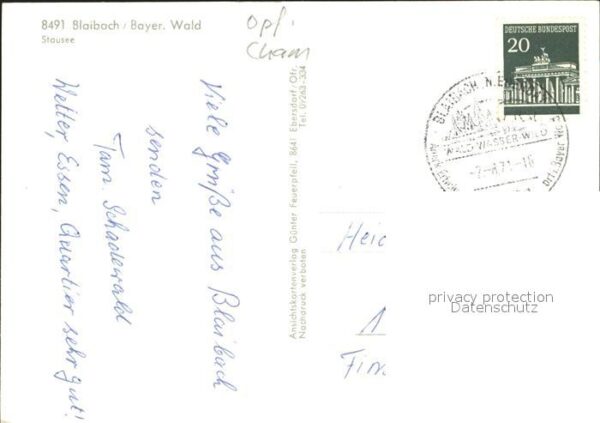 8491 Blaibach / Bayer. Wald
Stausee
Opf.
Cham
Viele Grüße aus Blaibach
senden
Fam. Schadewald
Wetter, Essen, Quartier sehr gut!
Ansichtskartenverlag Günter Feuerpfeil, 8641 Ebersdorf, Ofr.
Nachdruck verboten
Tel. 09263-334
DEUTSCHE BUNDESPOST
20
BLAIBACH
WALD-WASSER-WILD
-7-8.71-18
Heid
1
Fin
privacy protection
Datenschutz